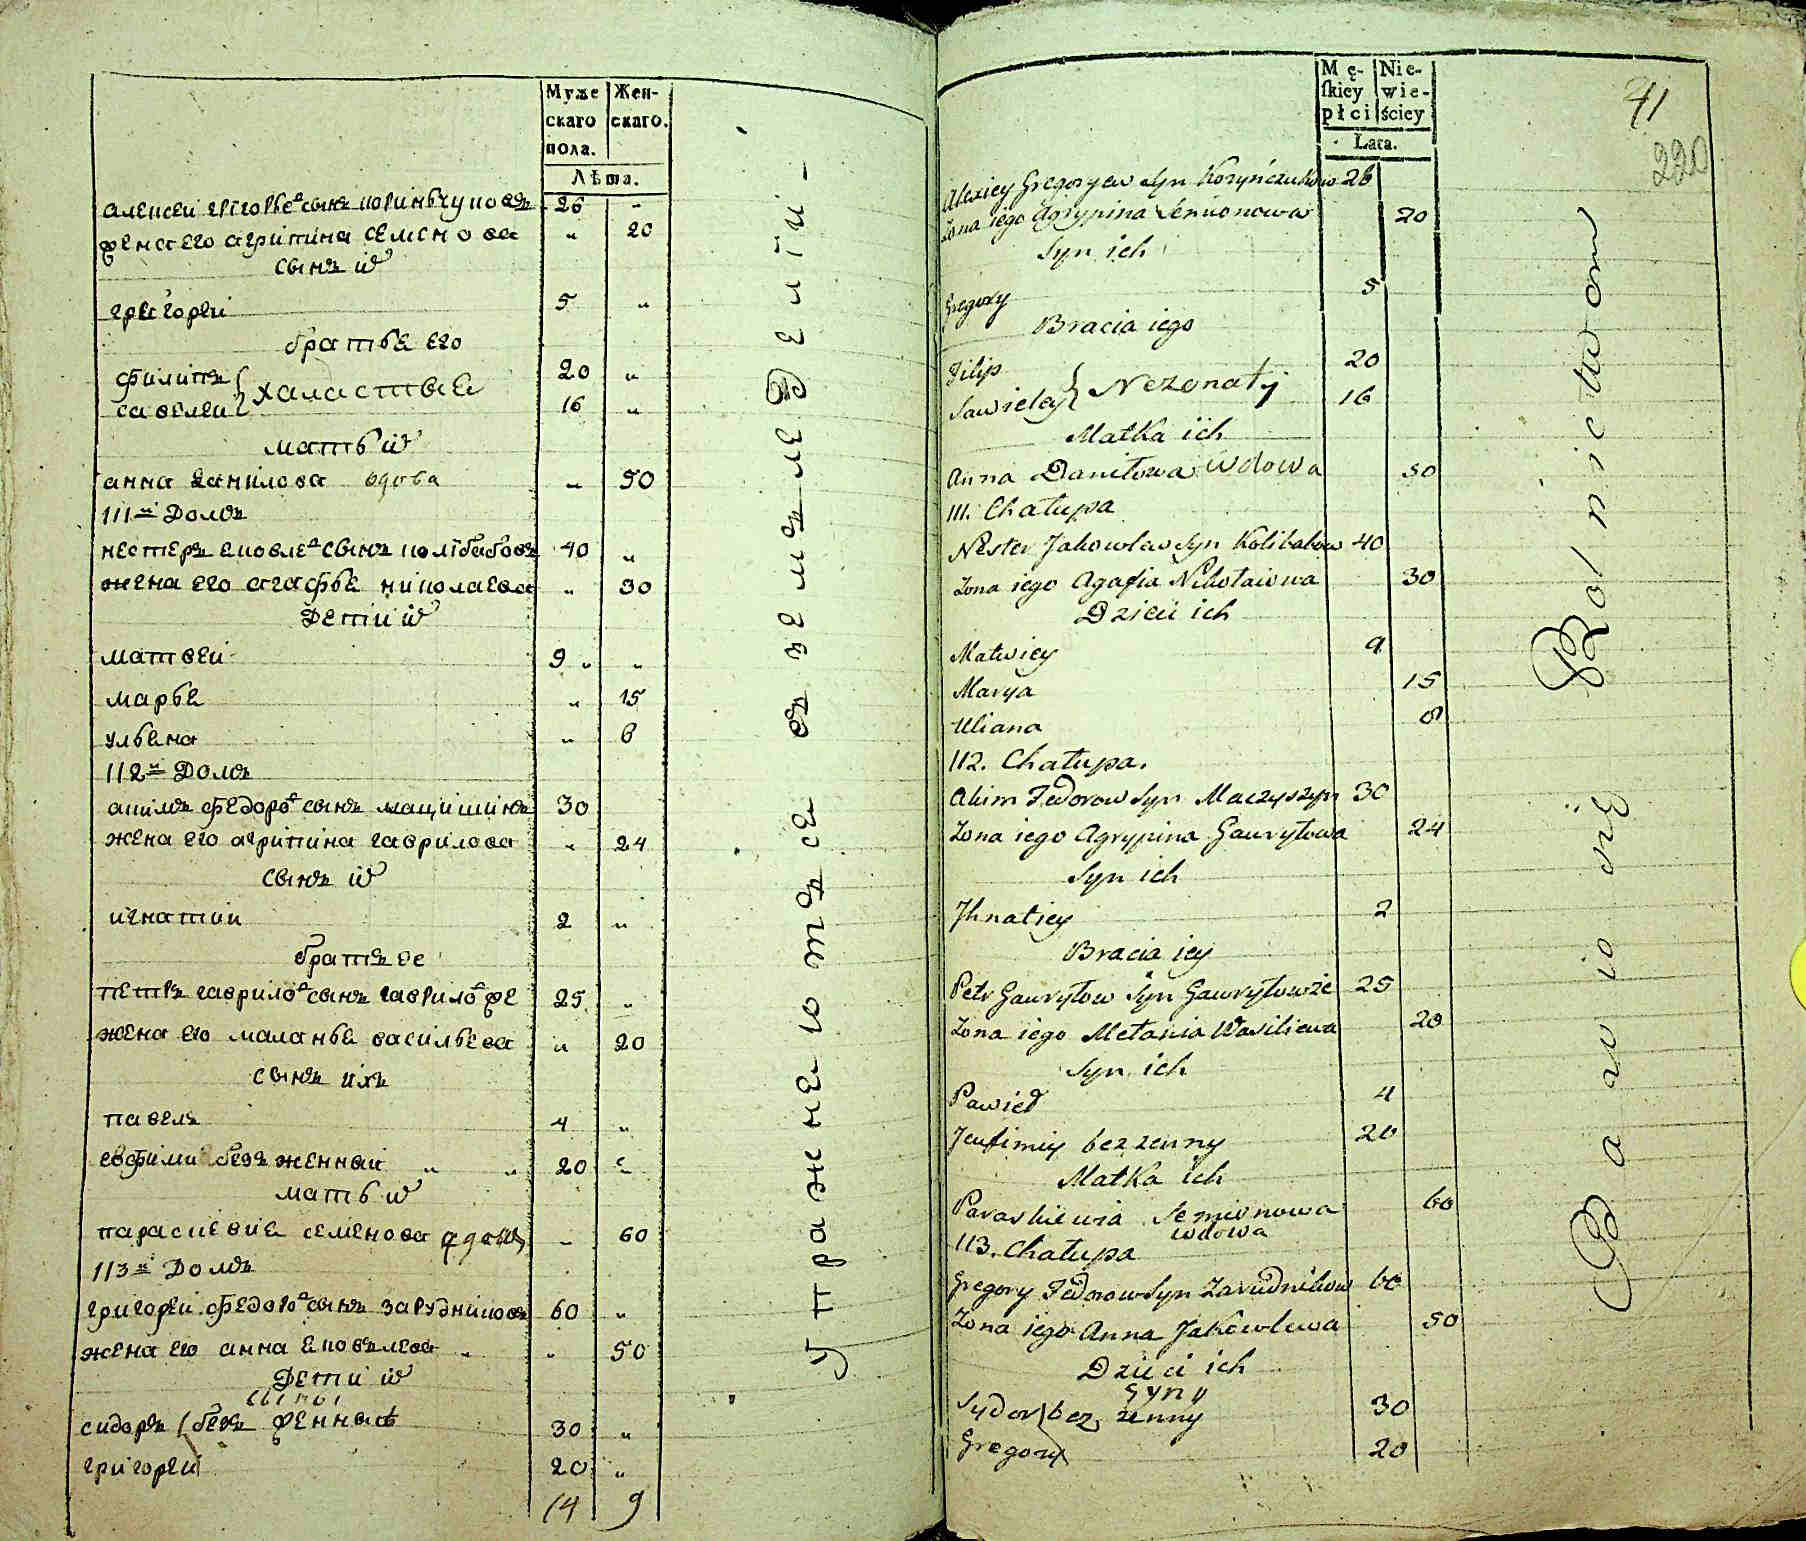 Муже Жен-
скаго скаго.
пола.
Лѣта.
алексеи григорьевъ сынъ коринчуковъ 26 "
жена его агрипина семенова " 20
сынъ их
григореи 5 "
братья его
филипъ 20 "
савелеи } халастыя 16 "
мать их
анна данилова вдова " 50
111й домъ
нестеръ яковлевъ сынъ колибабовъ 40 "
жена его агафья николаева " 30
Дети их
матвеи 9 " "
марья " 15
ульяна " 8
112й домъ
акимъ федоровъ сынъ мацишинъ 30
жена его агрипина гаврилова " 24
сынъ их
игнатии 2 "
братья ее
петръ гавриловъ сынъ гавриловъ же 25 "
жена его маланья васильева " 20
сынъ ихъ
павелъ 4 "
евфими безженный " " 20 "
мать их
параскевия семенова вдова " 60
113й домъ
григореи федоровъ сынъ зарудниковъ 60 "
жена его анна яковлева " " 50
Дети их
сыны
сидоръ безженныя 30 "
григореи 20 "
14 9
Упражнеютъся въ земледелiи
Mę- Nie-
skiey wie-
płci ściey
Lata.
41
220
Alexiey Gregoryew Syn Koryńczukow 26
Żona iego Agrypina Semionowa 20
Syn ich
Gregory 5
Bracia iego
Filip 20
Sawieley } Nezonaty 16
Matka ich
Anna Daniłowa wdowa 50
111. Chałupa
Nester Jakowlew Syn Kolibabow 40
Żona iego Agafia Nikołaiowa 30
Dzieci ich
Matwiey 9
Marya 15
Uliana 8
112. Chałupa.
Akim Fedorow Syn Maczyszyn 30
Żona iego Agrypina Gawryłowa 24
Syn ich
Ihnatiey 2
Bracia iey
Petr Gawryłow Syn Gawryłow że 25
Żona iego Mełania Wasiliewa 20
Syn ich
Pawieł 4
Jeufimiy bezzenny 20
Matka ich
Paraskiewia Semionowa 60
wdowa
113. Chałupa
Gregory Fedorow Syn Zarudnikow 60
Żona iego Anna Jakowlewa 50
Dzieci ich
Syny
Sydor } bez zenny 30
Gregory 20
Bawio się Rolnictwom